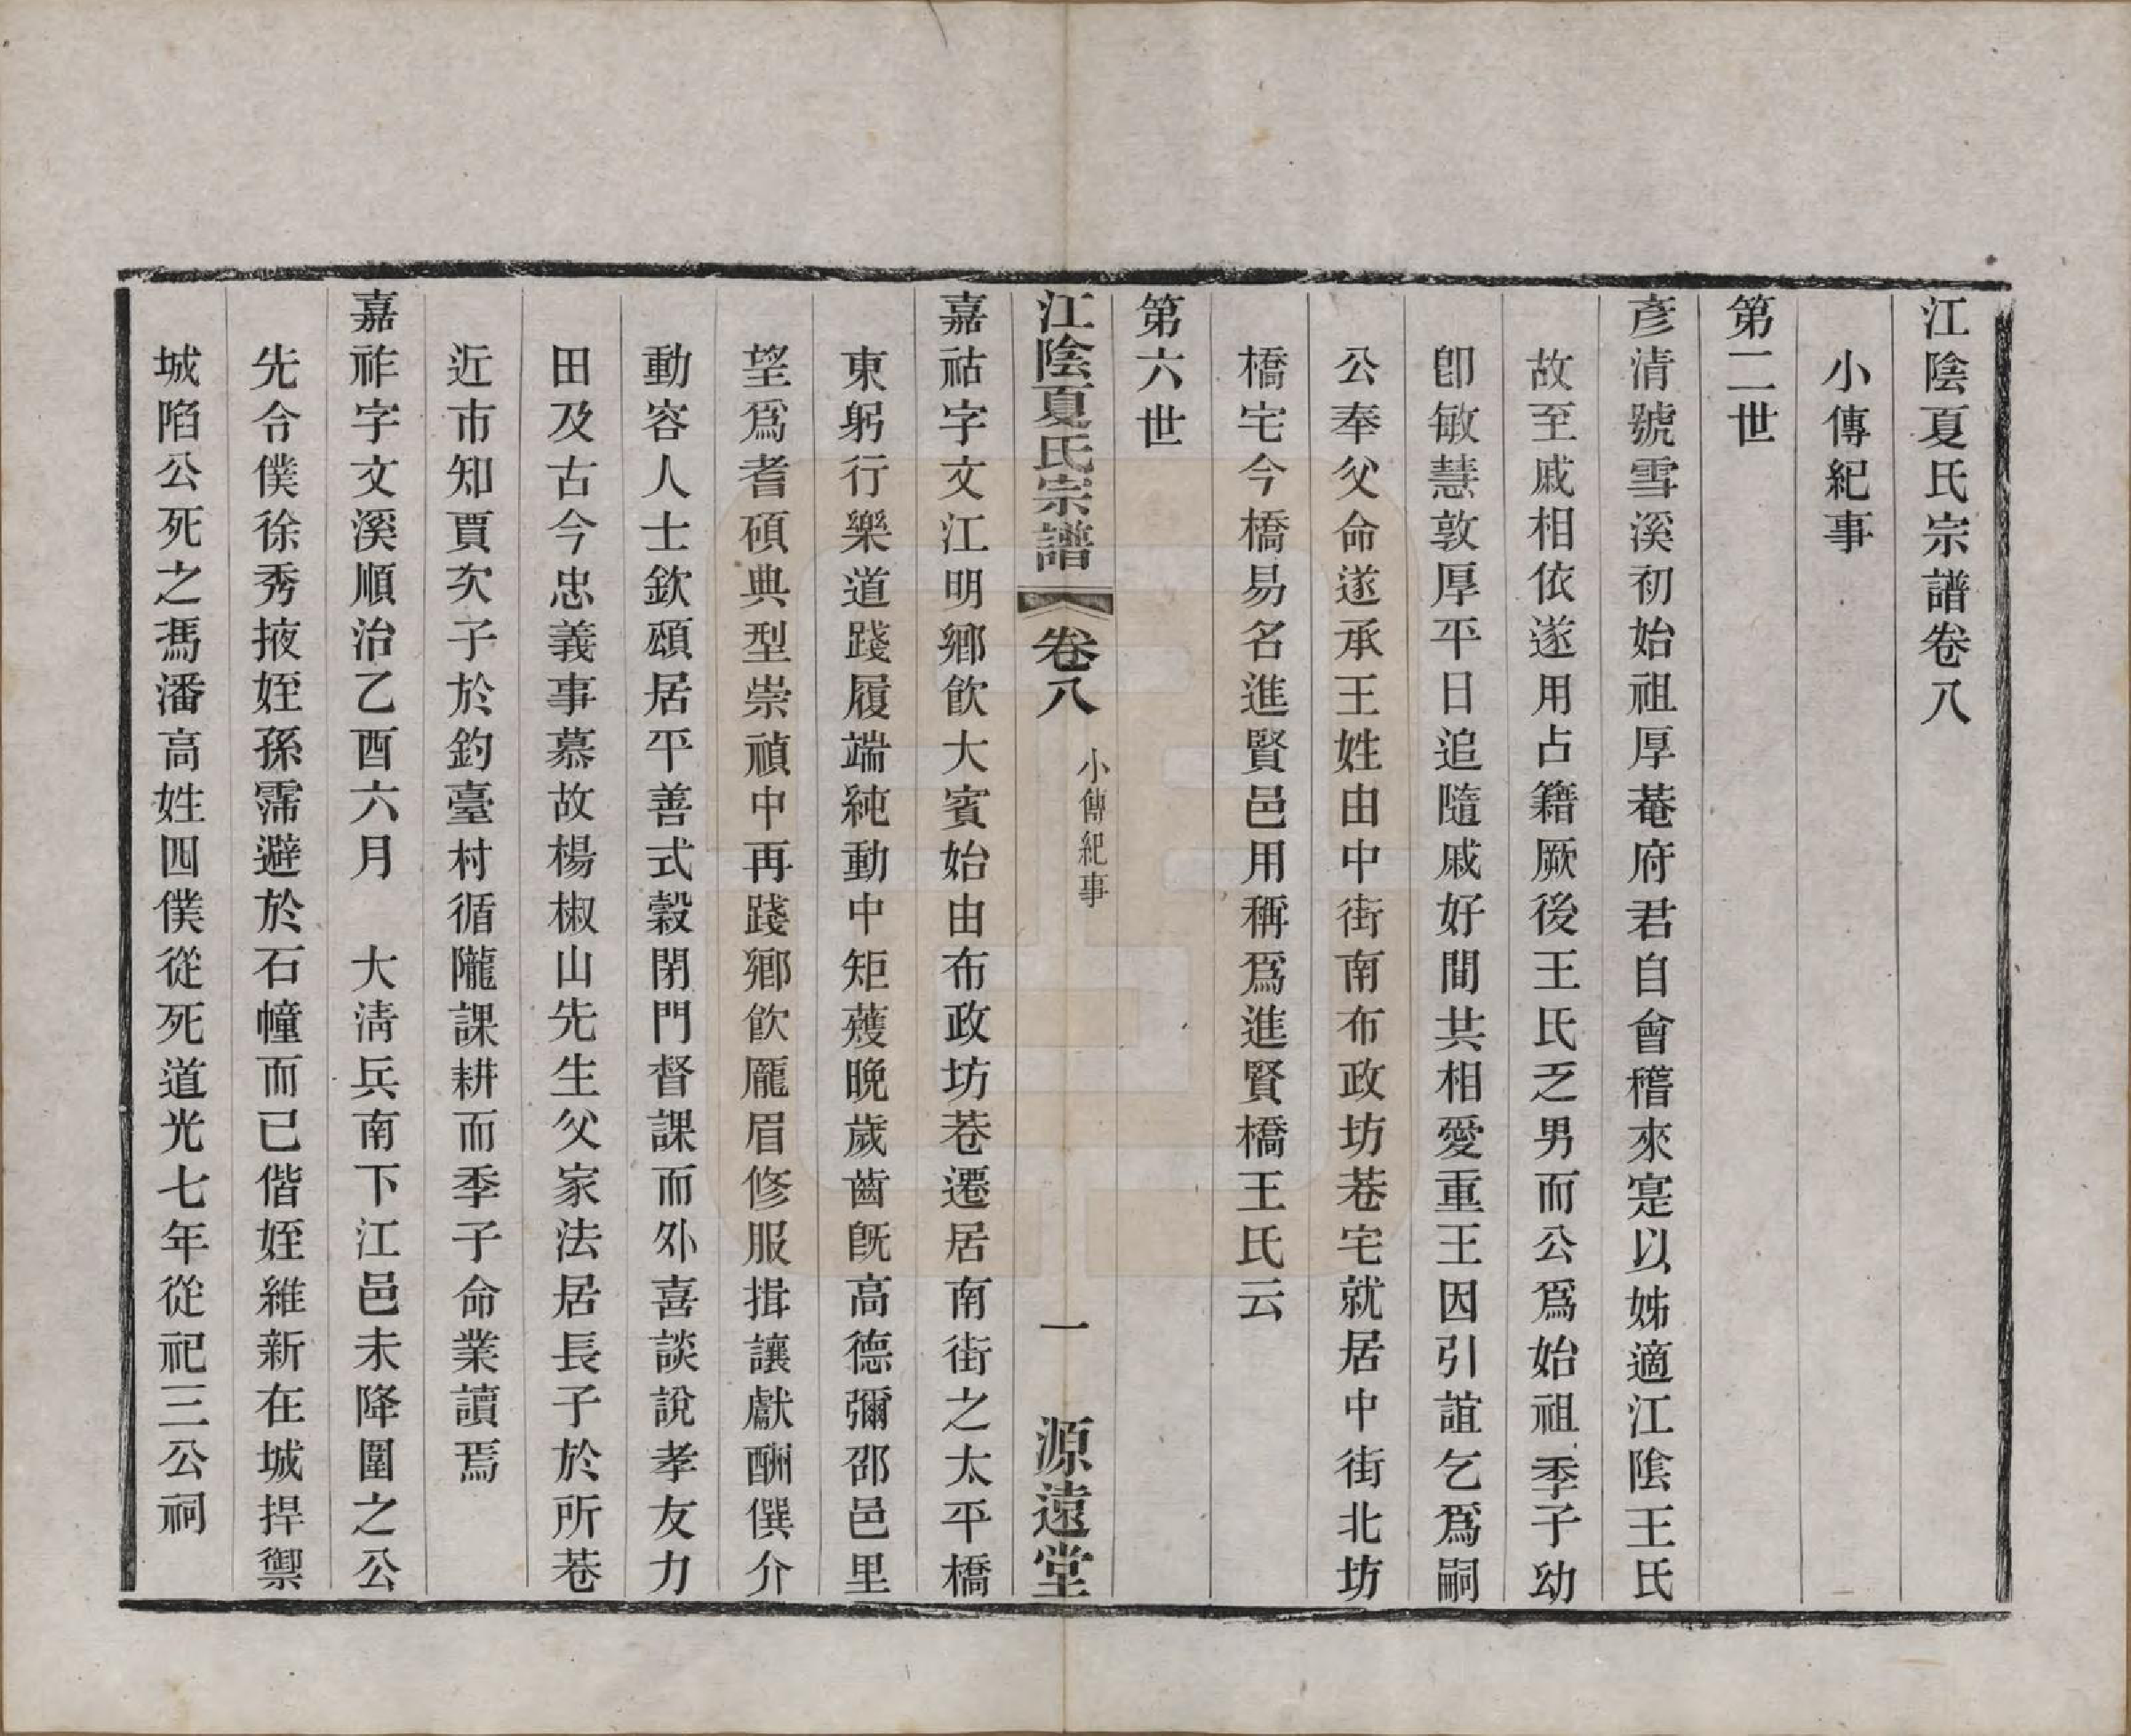 江陰夏氏宗譜卷八
小傳紀事
第二世
彥清號雪溪初始祖厚菴府君自會稽來寔以姊適江陰王氏
故至戚相依遂用占籍厥後王氏乏男而公爲始祖季子幼
卽敏慧敦厚平日追隨戚好間共相愛重王因引誼乞爲嗣
公奉父命遂承王姓由中街南布政坊巷宅就居中街北坊
橋宅今橋易名進賢邑用稱爲進賢橋王氏云
第六世
江陰夏氏宗譜
卷八
小傳紀事
一
源遠堂
嘉祜字文江明鄉飮大賓始由布政坊巷遷居南街之太平橋
東躬行樂道踐履端純動中矩蒦晚歲齒旣高德彌邵邑里
望爲耆碩典型崇禎中再踐鄉飮龐眉修服揖讓獻酬僎介
動容人士欽頌居平善式穀閉門督課而外喜談說孝友力
田及古今忠義事慕故楊椒山先生父家法居長子於所巷
近市知賈次子於釣臺村循隴課耕而季子命業讀焉
嘉祚字文溪順治乙酉六月　大淸兵南下江邑未降圍之公
先令僕徐秀掖姪孫霈避於石幢而已偕姪維新在城捍禦
城陷公死之馮潘高姓四僕從死道光七年從祀三公祠